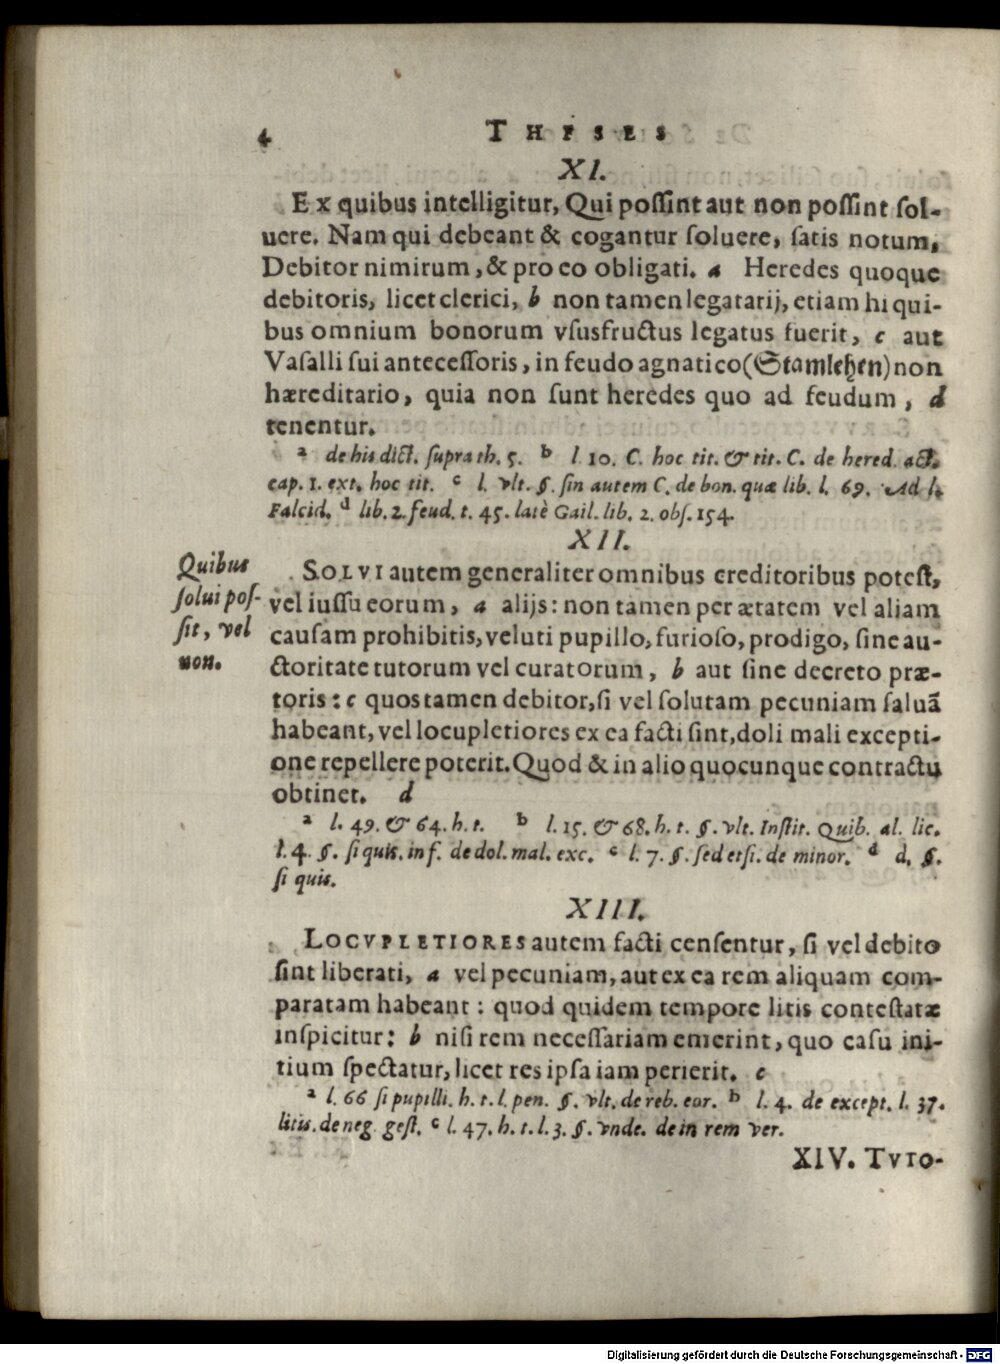 4 THESES
XI.
Ex quibus intelligitur, Qui poſſint aut non poſſint ſol-
uere. Nam qui debeant & cogantur ſoluere, ſatis notum,
Debitor nimirum, & pro eo obligati. a Heredes quoque
debitoris, licet clerici, b non tamen legatarij, etiam hi qui-
bus omnium bonorum vſusfructus legatus fuerit, c aut
Vaſalli ſui anteceſſoris, in feudo agnatico (Stamlehen) non
hæreditario, quia non ſunt heredes quo ad feudum, d
tenentur.
a de his dict. ſupra th. 5. b l 10. C. hoc tit. & tit. C. de hered. act.
cap. 1. ext. hoc tit. c l. vlt. §. ſin autem C. de bon. quæ lib. l. 69. Ad l.
Falcid. d lib. 2. feud. t. 45. latè Gail. lib. 2. obſ. 154.
XII.
Quibus
ſolui poſ-
ſit, vel
non.
SOLVI autem generaliter omnibus creditoribus poteſt,
vel iuſſu eorum, a alijs: non tamen per ætatem vel aliam
cauſam prohibitis, veluti pupillo, furioſo, prodigo, ſine au-
ctoritate tutorum vel curatorum, b aut ſine decreto præ-
toris: c quos tamen debitor, ſi vel ſolutam pecuniam ſaluã
habeant, vel locupletiores ex ea facti ſint, doli mali excepti-
one repellere poterit. Quod & in alio quocunque contractu
obtinet. d
a l. 49. & 64. h. t. b l. 15. & 68. h. t. §. vlt. Inſtit. Quib. al. lic.
l. 4. §. ſi quis. in f. de dol. mal. exc. c l. 7. §. ſed etſi. de minor. d d. §.
ſi quis.
XIII.
LOCVPLETIORES autem facti cenſentur, ſi vel debito
ſint liberati, a vel pecuniam, aut ex ea rem aliquam com-
paratam habeant: quod quidem tempore litis conteſtatæ
inſpicitur: b niſi rem neceſſariam emerint, quo caſu ini-
tium ſpectatur, licet res ipſa iam perierit. c
a l. 66 ſi pupilli. h. t. l. pen. §. vlt. de reb. eor. b l. 4. de except. l. 37.
litis. de neg. geſt. c l. 47. h. t. l. 3. §. vnde. de in rem ver.
XIV. TVTO-
Digitalisierung gefördert durch die Deutsche Forschungsgemeinschaft - DFG